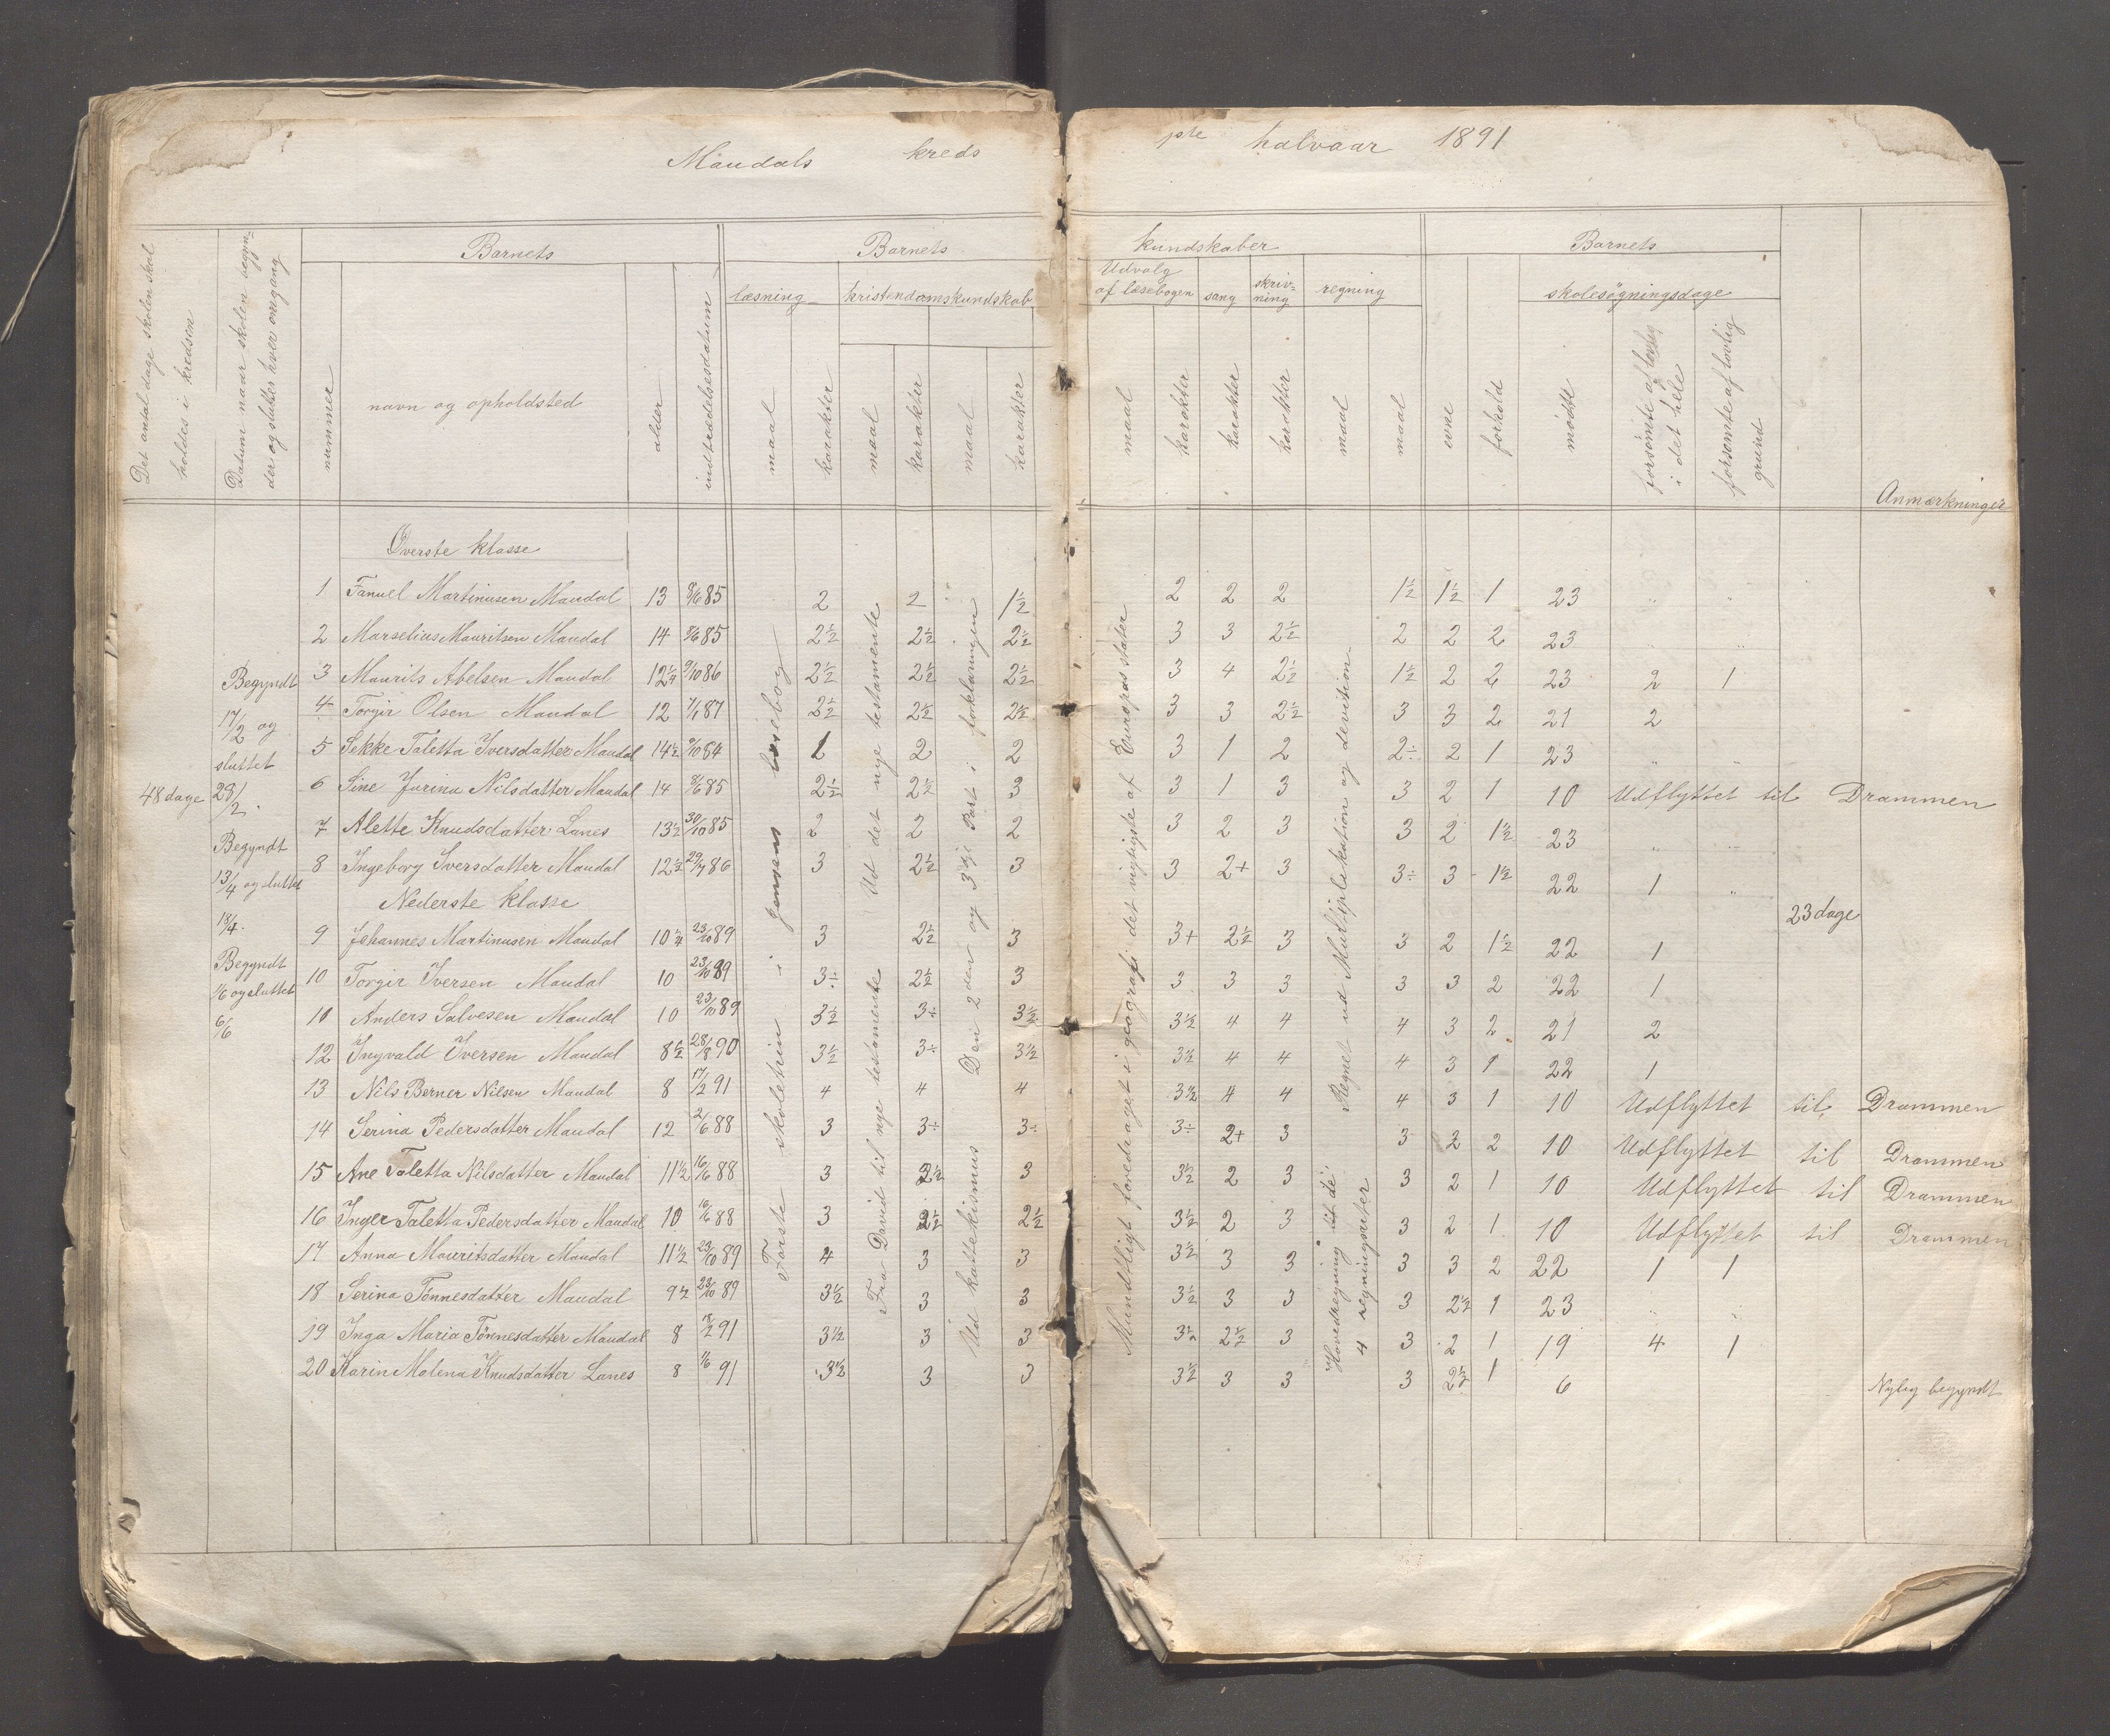 Maudals kreds
1ste halvaar 1891
Det antal dage skolen skal holdes i kredsen
Datum naar skolen begynder og sluttes hver omgang
Barnets
nummer
navn og opholdsted
alder
indtrædelsesdatum
Barnets kundskaber
læsning
maal
karakter
kristendomskundskab
maal
karakter
maal
karakter
Udvalg af læsebogen
maal
karakter
sang
karakter
skrivning
karakter
regning
maal
maal
Barnets
evne
forhold
skolesøgningsdage
mødte
forsømte af lovlig i det hele
forsømte af lovlig grund
Anmærkninger
48 dage
Begyndt
17/2 og
sluttet
28/2.
Begyndt
13/4 og sluttet
18/4.
Begyndt
1/6 og sluttet
6/6
Første skoletrin i Jensens læsebog
Ud det nye testamente
Fra David til nye testamente
Den 2den og 3dje Part i forklaringen
Ud kattekismus
Mundtligt foredraget i geografi det vigtigste af Europas stater
Regnet ud Multiplekation og devition
Hovedregning til de 4 regningsarter
23 dage
Øverste klasse
1 Fanuel Martinusen Maudal 13 8/6 85 2 2 1½ 2 2 2 1½ 1½ 1 23 " "
2 Marselius Mauritsen Maudal 14 8/6 85 2½ 2½ 2½ 3 3 2½ 2 2 2 23 " "
3 Maurits Abelsen Maudal 12¼ 9/10 86 2½ 2½ 2½ 3 4 2½ 1½ 2 2 23 2 1
4 Torgir Olsen Maudal 12 7/1 87 2½ 2½ 2½ 3 3 2½ 3 3 2 21 2
5 Sekke Taletta Iversdatter Maudal 14½ 9/10 84 1 2 2 3 1 2 2÷ 2 1 23 " "
6 Sine Jurina Nilsdatter Maudal 14 8/6 85 2½ 2½ 3 3 1 3 3 2 1 10 Udflyttet til Drammen
7 Alette Knudsdatter Lanes 13½ 30/10 85 2 2 2 3 2 3 3 2 1½ 23 " "
8 Ingeborg Iversdatter Maudal 12½ 29/7 86 3 2½ 3 3 2+ 3 3÷ 3 1½ 22 1 "
Nederste klasse
9 Johannes Martinusen Maudal 10¼ 23/10 89 3 2½ 3 3+ 2½ 3 3 2 1½ 22 1
10 Torgir Iversen Maudal 10 23/10 89 3÷ 2½ 3 3 3 3 3 3 2 22 1
11 Anders Salvesen Maudal 10 23/10 89 3½ 3÷ 3½ 3½ 4 4 4 3 2 21 2
12 Ingvald Iversen Maudal 8½ 28/8 90 3½ 3÷ 3½ 3½ 4 4 4 3 1 22 1
13 Nils Berner Nilsen Maudal 8 17/2 91 4 4 4 3½ 4 4 4 3 1 10 Udflyttet til Drammen
14 Serina Pedersdatter Maudal 12 2/6 88 3 3÷ 3÷ 3÷ 2+ 3 3 2 2 10 Udflyttet til Drammen
15 Ane Taletta Nilsdatter Maudal 11½ 16/6 88 3 2½ 3 3½ 2 3 3 2 1 10 Udflyttet til Drammen
16 Inger Taletta Pedersdatter Maudal 10 16/6 88 3 2½ 2½ 3½ 2 3 3 2 1 10 Udflyttet til Drammen
17 Anna Mauritsdatter Maudal 11½ 23/10 89 4 3 3 3½ 3 3 3 3 2 22 1 1
18 Serina Tønnesdatter Maudal 9½ 23/10 89 3½ 3 3 3½ 3 3 3 2½ 1 23 " "
19 Inga Maria Tønnesdatter Maudal 8 17/2 91 3½ 3 3 3½ 2½ 3 3 2 1 19 4 1
20 Karin Malena Knudsdatter Lanes 8 1/6 91 3½ 3 3 3½ 3 3 3 2½ 1 6 Nylig begyndt